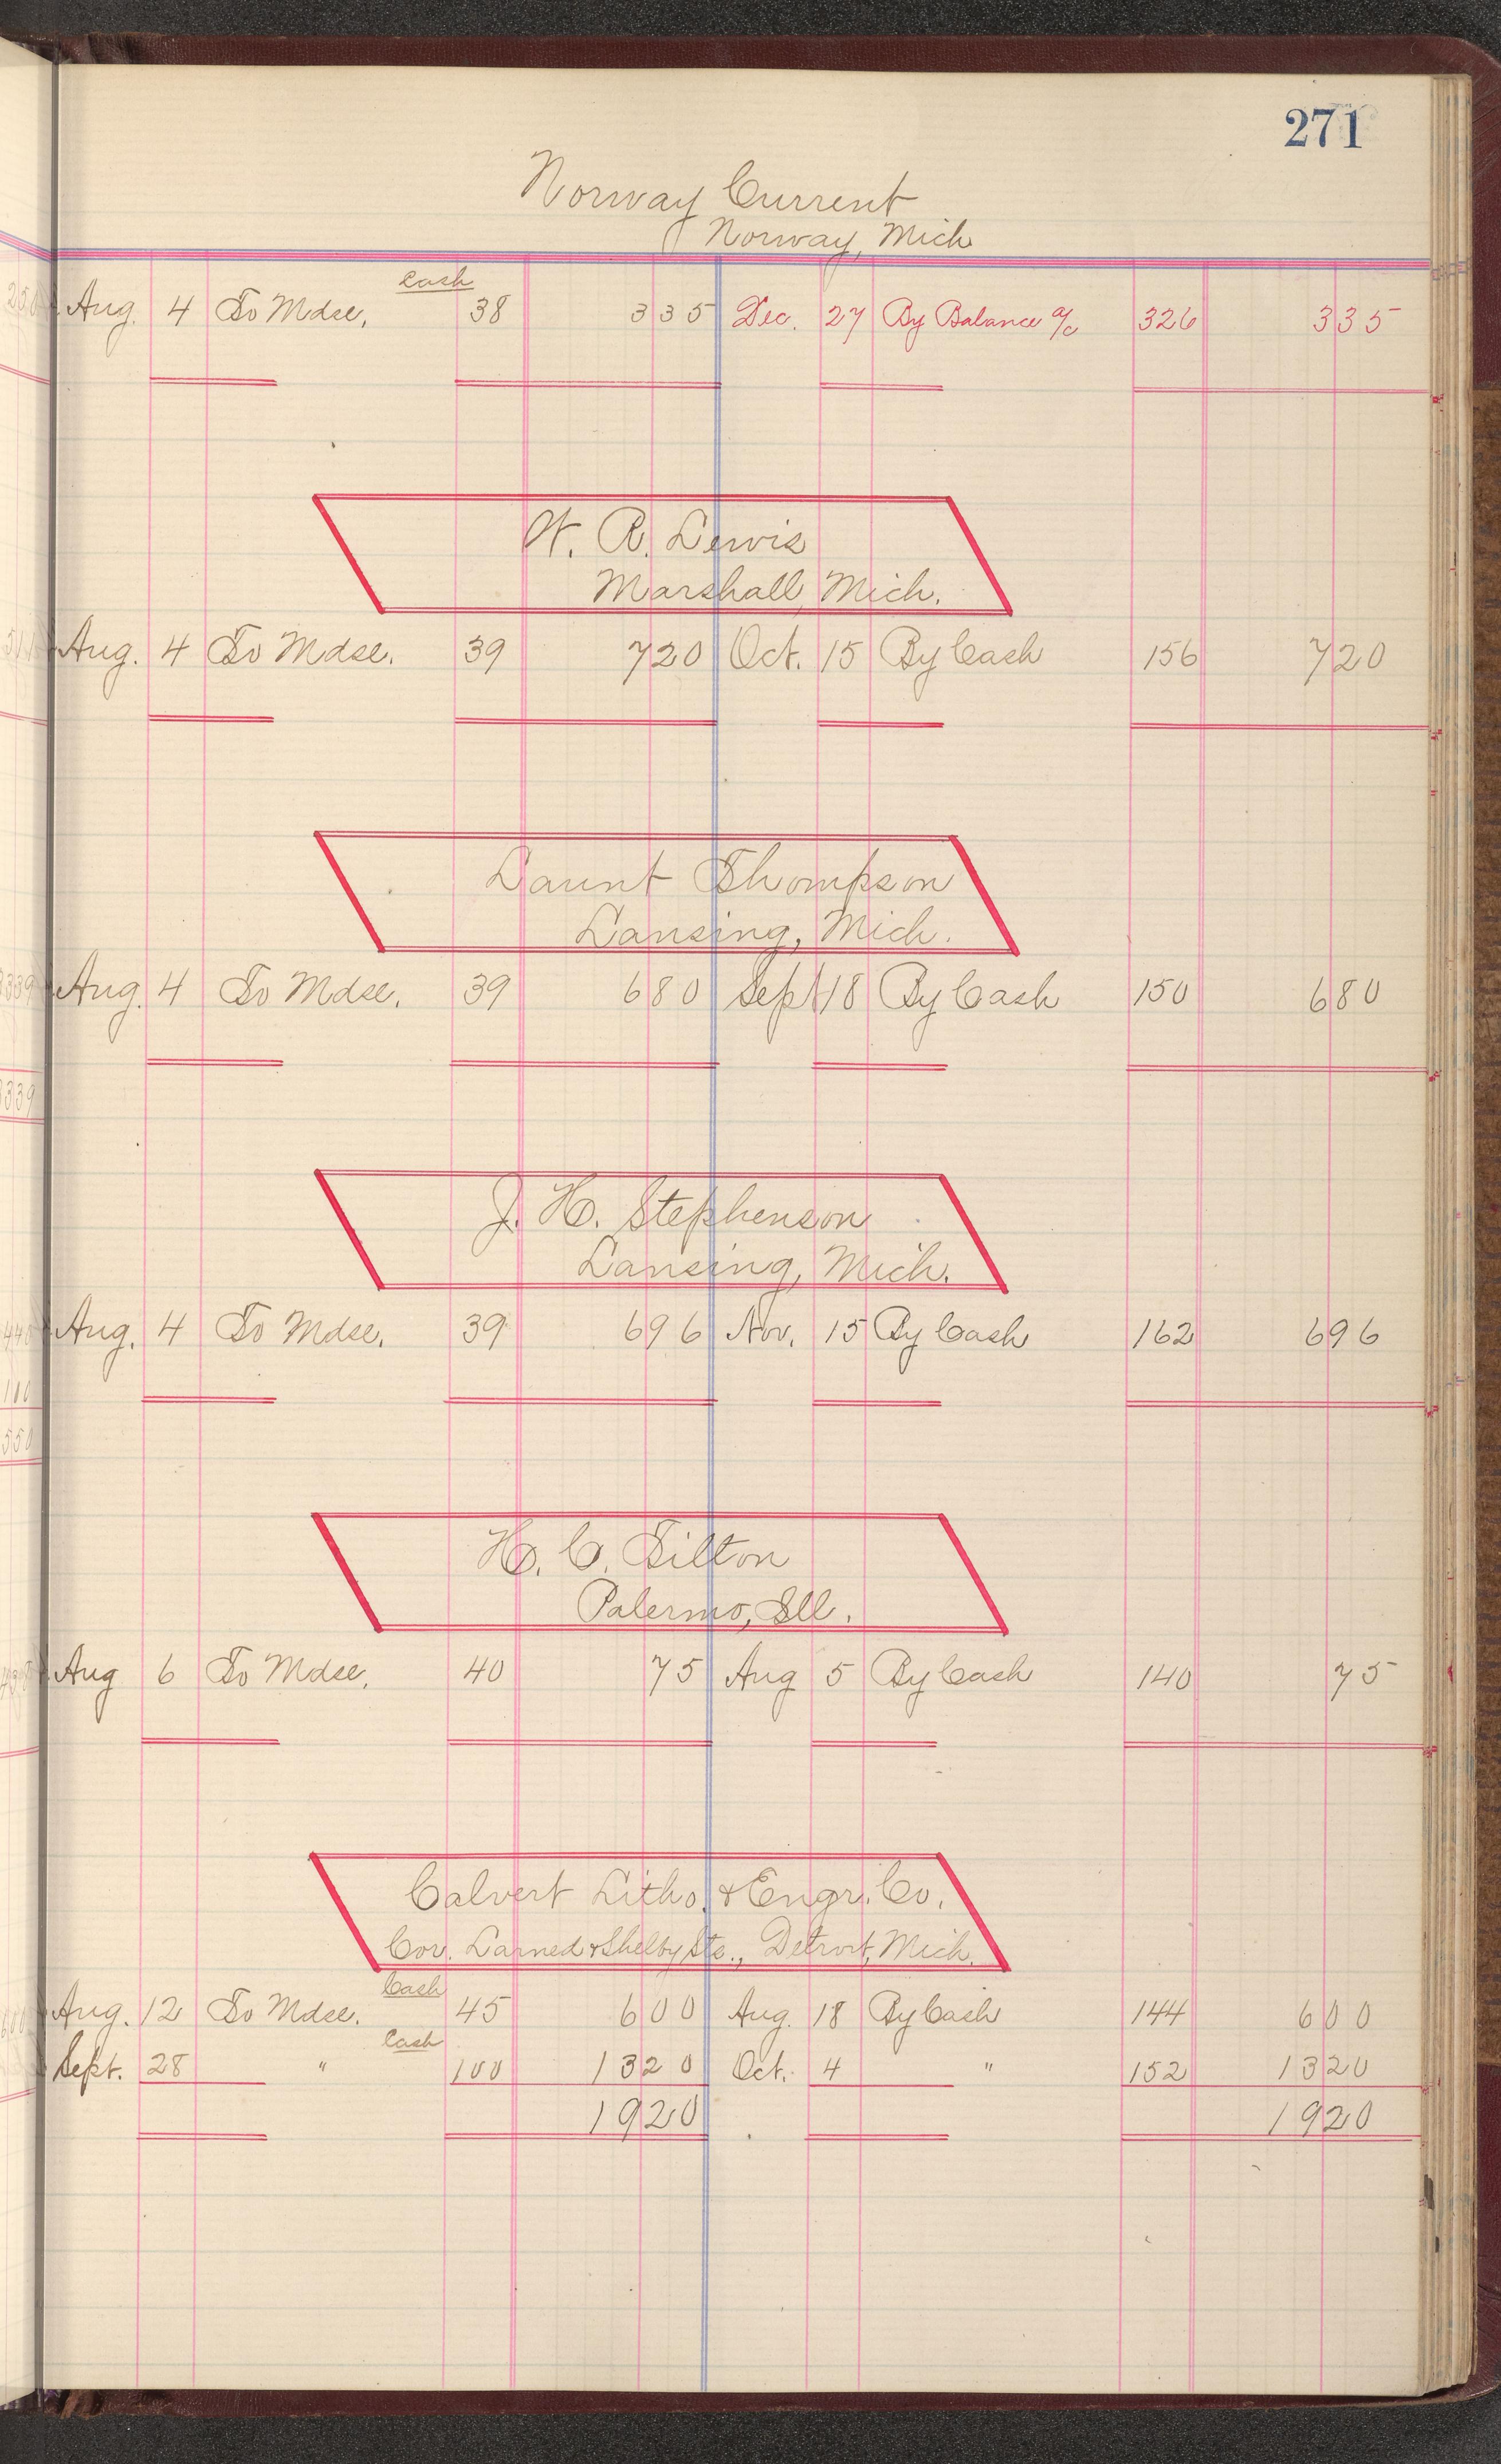 271
Norway Current
Norway, Mich
cash
Aug. 4 To Mdse. 38 3 35 Dec. 27 By Balance a/c 326 3 35
W. R. Lewis
Marshall, Mich.
Aug. 4 To Mdse. 39 7 20 Oct. 15 By Cash 156 7 20
Launt Thompson
Lansing, Mich.
Aug. 4 To Mdse. 39 6 80 Sept 18 By Cash 150 6 80
J. H. Stephenson
Lansing, Mich.
Aug. 4 To Mdse. 39 6 96 Nov. 15 By Cash 162 6 96
H. C. Tilton
Palermo, Ill.
Aug 6 To Mdse. 40 75 Aug 5 By Cash 140 75
Calvert Litho. & Engr. Co.
Cor. Larned & Shelby Sts., Detroit, Mich.
Cash
Aug. 12 To Mdse. 45 6 00 Aug. 18 By Cash 144 6 00
cash
Sept. 28 " 100 13 20 Oct. 4 " 152 13 20
19 20 19 20